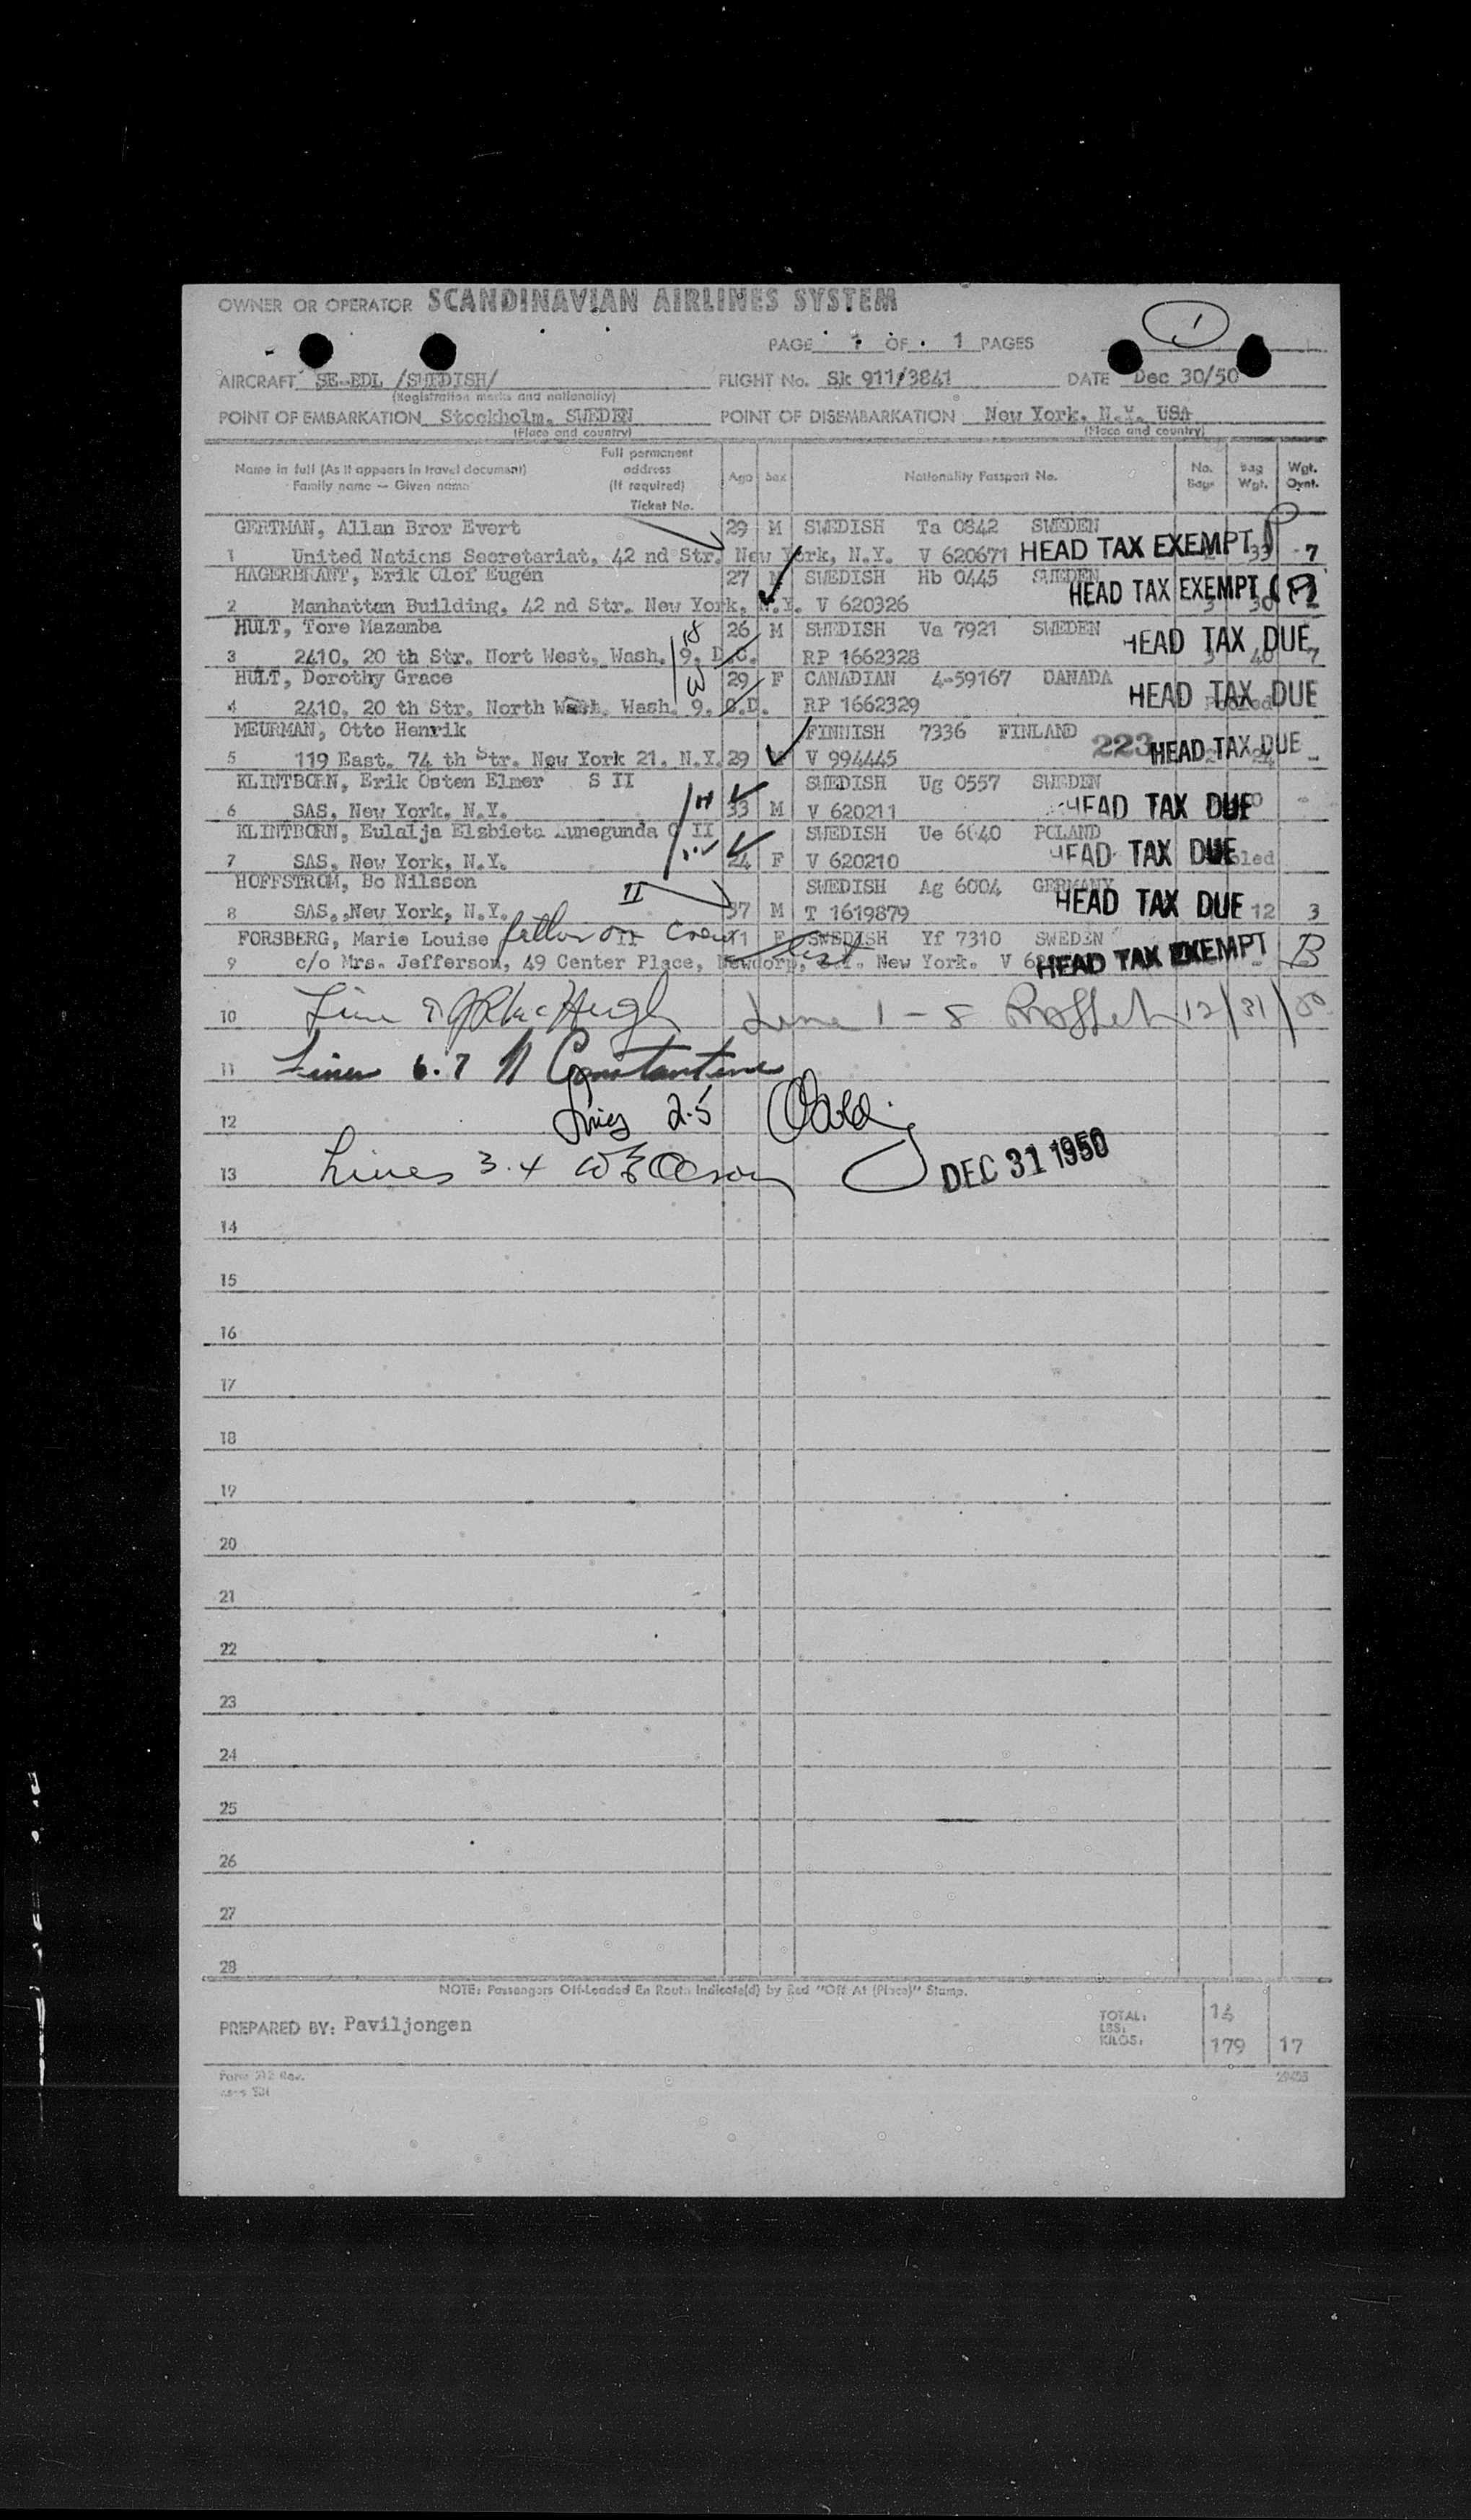 OWNER OR OPERATOR SCANDINAVIAN AIRLINES SYSTEM
1
PAGE 1 OF 1 PAGES
AIRCRAFT SE-BDL /SWEDISH/ FLIGHT No. Sk 911/3841 DATE Dec 30/50
(Registration marks and nationality)
POINT OF EMBARKATION Stockholm, SWEDEN POINT OF DISEMBARKATION New York, N.Y. USA
(Place and country) (Place and country)
Name in full (As it appears in travel document) Family name — Given name Full permanent address (If required) Ticket No. Age Sex Nationality Passport No. No. Bags Bag Wgt. Wgt. Ovnt.
GERTMAN, Allan Bror Evert 29 M SWEDISH Ta 0842 SWEDEN
1 United Nations Secretariat, 42 nd Str. New York, N.Y. V 620671 HEAD TAX EXEMPT 33 7
HAGERBRANT, Erik Olof Eugén 27 M SWEDISH Hb 0445 SWEDEN
2 Manhattan Building, 42 nd Str. New York, N.Y. V 620326 HEAD TAX EXEMPT 30
HULT, Tore Mazamba 26 M SWEDISH Va 7921 SWEDEN
3 2410, 20 th Str. Nort West, Wash. 9, D.C. RP 1662328 HEAD TAX DUE 3 40 7
HULT, Dorothy Grace 29 F CANADIAN 4-59167 CANADA
4 2410, 20 th Str. North West, Wash. 9. C.D. RP 1662329 HEAD TAX DUE Pooled
MEURMAN, Otto Henrik FINNISH 7336 FINLAND
5 119 East. 74 th Str. New York 21, N.Y. 29 V 994445 223 HEAD TAX DUE 2 24 -
KLINTBORN, Erik Osten Elmer S II SWEDISH Ug 0557 SWEDEN
6 SAS, New York, N.Y. 33 M V 620211 HEAD TAX DUE -
KLINTBORN, Eulalja Elzbieta Kunegunda II SWEDISH Ue 6040 POLAND
7 SAS, New York, N.Y. 24 F V 620210 HEAD TAX DUE
HOFFSTROM, Bo Nilsson II SWEDISH Ag 6004 GERMANY
8 SAS, New York, N.Y. 37 M T 1619879 HEAD TAX DUE 12 3
FORSBERG, Marie Louise II father on crew list 11 F SWEDISH Yf 7310 SWEDEN
9 c/o Mrs. Jefferson, 49 Center Place, Newdorp, S.I. New York. V HEAD TAX EXEMPT B
10 Line 9 Line 1 - 8 12/31/50
11 Lines 6.7 N Constantine
12 Lines 2.5
13 Lines 3.4 DEC 31 1950
14
15
16
17
18
19
20
21
22
23
24
25
26
27
28
NOTE: Passengers Off-Loaded En Route Indicate(d) by Red "Off At (Place)" Stamp.
PREPARED BY: Paviljongen TOTAL: 14
LBS:
KILOS: 179 17
Form 212 Rev.